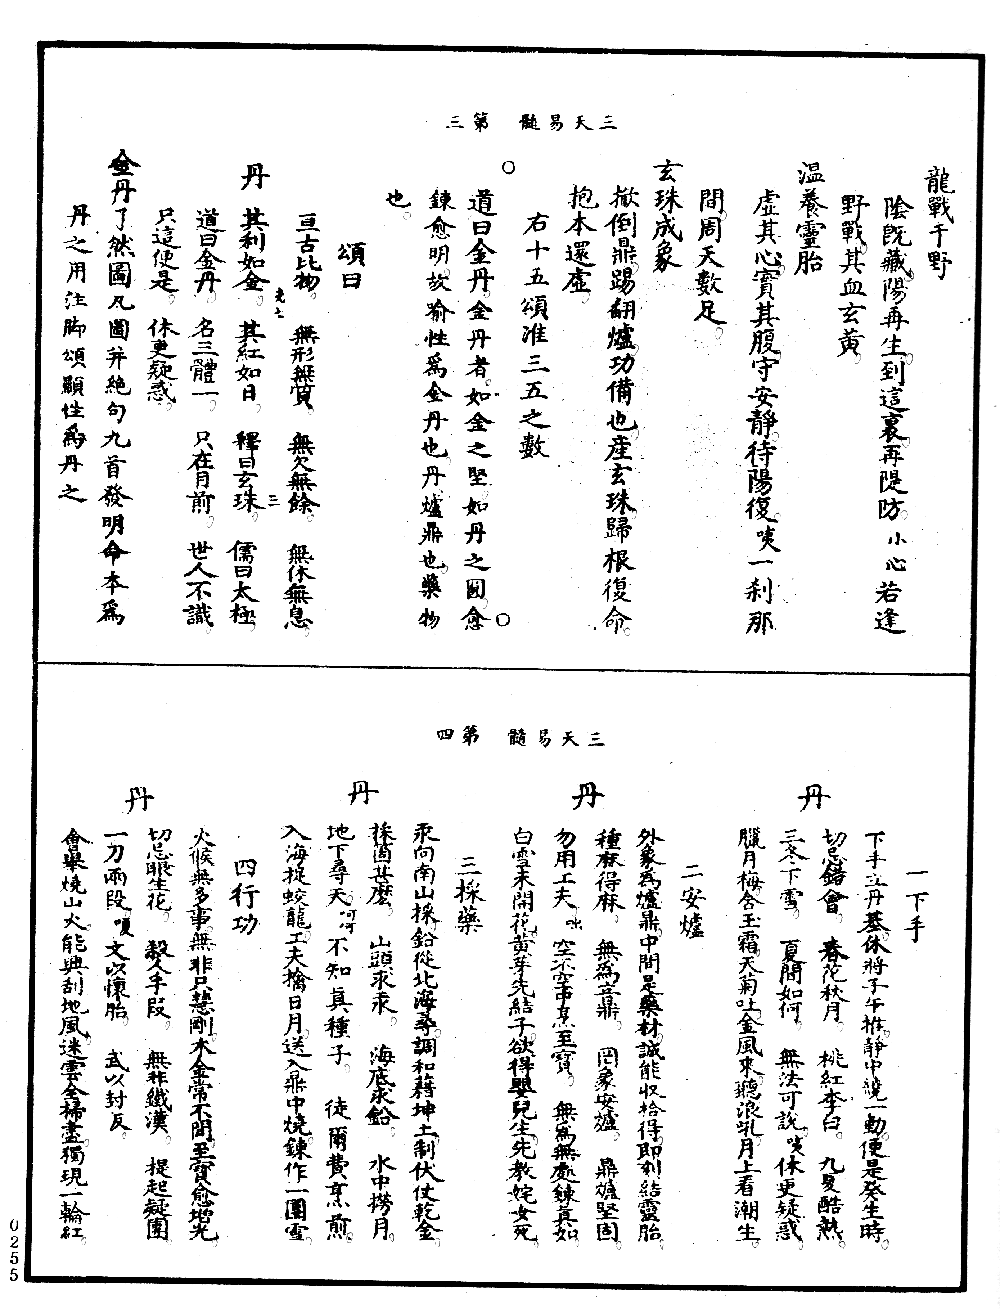 三天易髓　第三
龍戰于野
陰既藏陽再生到這裏再隄防小心若逢
野戰其血玄黃
溫養靈胎
虛其心實其腹守安靜待陽復㗖一剎那
間周天數足
玄珠成象
掀倒鼎踢翻爐功備也產玄珠歸根復命
抱本還虛
右十五頌准三五之數
○
道曰金丹金丹者如金之堅如丹之圓愈
鍊愈明故喻性為金丹也丹爐鼎也藥物
也
○
頌曰
亘古比物　無形無質　無欠無餘　無休無息
丹　其利如金　其紅如日　釋曰玄珠　儒曰太極
道曰金丹　名三體一　只在目前　世人不識
只這便是　休更疑惑
金丹了然圖凡圖并絶句九首發明命本為
丹之用注脚頌顯性為丹之
三天易髓　第四
一下手
下手立丹基休將子午推靜中纔一動便是癸生時
丹　切忌錯會　春花秋月　桃紅李白　九夏酷熱
三冬下雪　夏間如何　無法可說　㗖休更疑惑
臘月梅含玉霜天菊吐金風來聽浪吼月上看潮生
二安爐
外象為爐鼎中間是藥材誠能收拾得即刻結靈胎
種麻得麻　無為立鼎　罔象安爐　鼎爐堅固
丹　勿用工夫　空不空中烹至寶　無為無處鍊真如
白雪未開花黃芽先結子欲得嬰兒生先教姹女死
三採藥
汞向南山採鉛從北海尋調和藉坤土制伏仗乾金
採箇甚麼　山頭求汞　海底求鉛　水中撈月
丹　地下尋天　呵呵　不知真種子　徒爾費烹煎
入海捉蛟龍工夫擒日月送入鼎中燒鍊作一團雪
四行功
火候無多事無非只慧剛木金常不間至寶愈增光
切忌眼生花　殺人手段　無非鐵漢　提起疑團
丹　一刀兩段　嗄　文以懷胎　武以封反
會舉燒山火能興刮地風迷雲全掃盡獨現一輪紅
0255